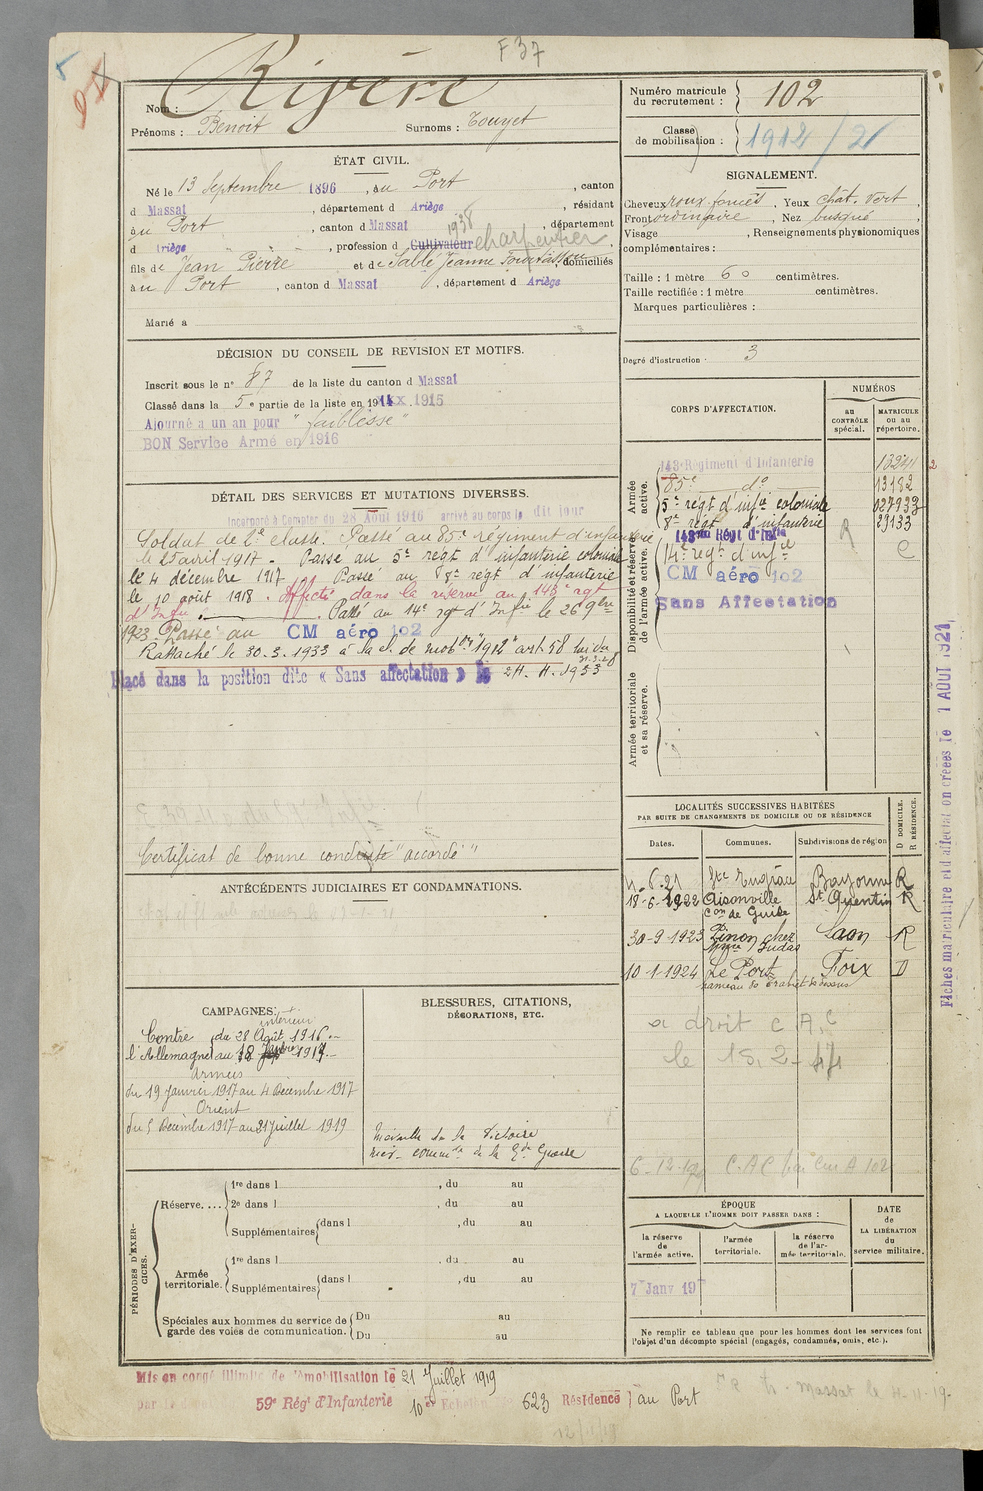 F 37
Nom : Rivère
Prénoms : Benoit Surnoms : Touyet
Numéro matricule du recrutement : 102
Classe de mobilisation : 1912 / 21
ÉTAT CIVIL.
Né le 13 Septembre 1896, au Port, canton
d Massat, département d Ariège, résidant
au Port, canton d Massat, département
d Ariège, profession d Cultivateur 1938 charpentier
fils de Jean Pierre et de Sablé Jeanne domiciliés
au Port, canton d Massat, département d Ariège
Marié a
SIGNALEMENT.
Cheveux roux foncés, Yeux chât. vert,
Front ordinaire, Nez busqué,
Visage , Renseignements physionomiques
complémentaires :
Taille : 1 mètre 60 centimètres.
Taille rectifiée : 1 mètre centimètres.
Marques particulières :
Degré d'instruction 3
DÉCISION DU CONSEIL DE REVISION ET MOTIFS.
Inscrit sous le n° 87 de la liste du canton d Massat
Classé dans la 5e partie de la liste en 1915
Ajourné a un an pour "faiblesse"
BON Service Armé en 1916
DÉTAIL DES SERVICES ET MUTATIONS DIVERSES.
Incorporé à Compter du 28 Août 1916 arrivé au corps le dit jour
Soldat de 2e classe. Passé au 85e régiment d'infanterie
le 25 avril 1917. Passé au 5e regt d'infanterie coloniale
le 4 décembre 1917. Passé au 8e regt d'infanterie
le 10 août 1918. Affecté dans la réserve au 143e rgt
d'Infie. Passé au 14e rgt d'Infie le 26 9bre
1923. Passé au CM aéro 102
Rattaché le 30.3.1933 à la cl. de mobon "1912" art 58 loi du 31.3.28
Placé dans la position dite « Sans affectation » le 24.4.1933
Certificat de bonne conduite "accordé"
CORPS D'AFFECTATION.
NUMÉROS
au CONTRÔLE spécial.
MATRICULE ou au répertoire.
Armée active.
143e Régiment d'Infanterie
85e do 13182
5e regt d'infie coloniale 027933
8e regt d'infanterie 29133
Disponibilité et réserve de l'armée active.
143e Régt d'Infie
14e regt d'infie
CM aéro 102
Sans Affectation
Armée territoriale et sa réserve.
LOCALITÉS SUCCESSIVES HABITÉES
PAR SUITE DE CHANGEMENTS DE DOMICILE OU DE RÉSIDENCE
Dates. Communes. Subdivisions de région D DOMICILE. R RÉSIDENCE.
4-6-21 Ste Engrâce Bayonne R
18-6-1922 Aisonville con de Guise St Quentin R
30-9-1923 Pinon chez Mme Judas Laon R
10-1-1924 Le Port Foix D
a droit C A C
le 15.2-44
ANTÉCÉDENTS JUDICIAIRES ET CONDAMNATIONS.
CAMPAGNES:
intérieur
Contre l'Allemagne du 28 Août 1916
au 18 Janvier 1917
Armées
du 19 Janvier 1917 au 4 Décembre 1917
Orient
du 5 Décembre 1917 au 21 Juillet 1919
BLESSURES, CITATIONS,
DÉCORATIONS, ETC.
Médaille de la Victoire
Méd. commve de la Gde Guerre
PÉRIODES D'EXERCICES.
Réserve.... 1re dans l , du au
2e dans l , du au
Supplémentaires dans l , du au
Armée territoriale. 1re dans l , du au
Supplémentaires dans l , du au
Spéciales aux hommes du service de garde des voies de communication. Du au
Du au
ÉPOQUE
A LAQUELLE L'HOMME DOIT PASSER DANS :
la réserve de l'armée active.
l'armée territoriale.
la réserve de l'armée territoriale.
DATE de LA LIBÉRATION du service militaire.
Ne remplir ce tableau que pour les hommes dont les services font
l'objet d'un décompte spécial (engagés, condamnés, omis, etc.).
Mis en congé illimité de démobilisation le 21 Juillet 1919
59e Régt d'Infanterie 10e Echelon 623 Résidence au Port
Massat le
Fiches matriculaire et d'affectation créées le 1 AOUT 1921